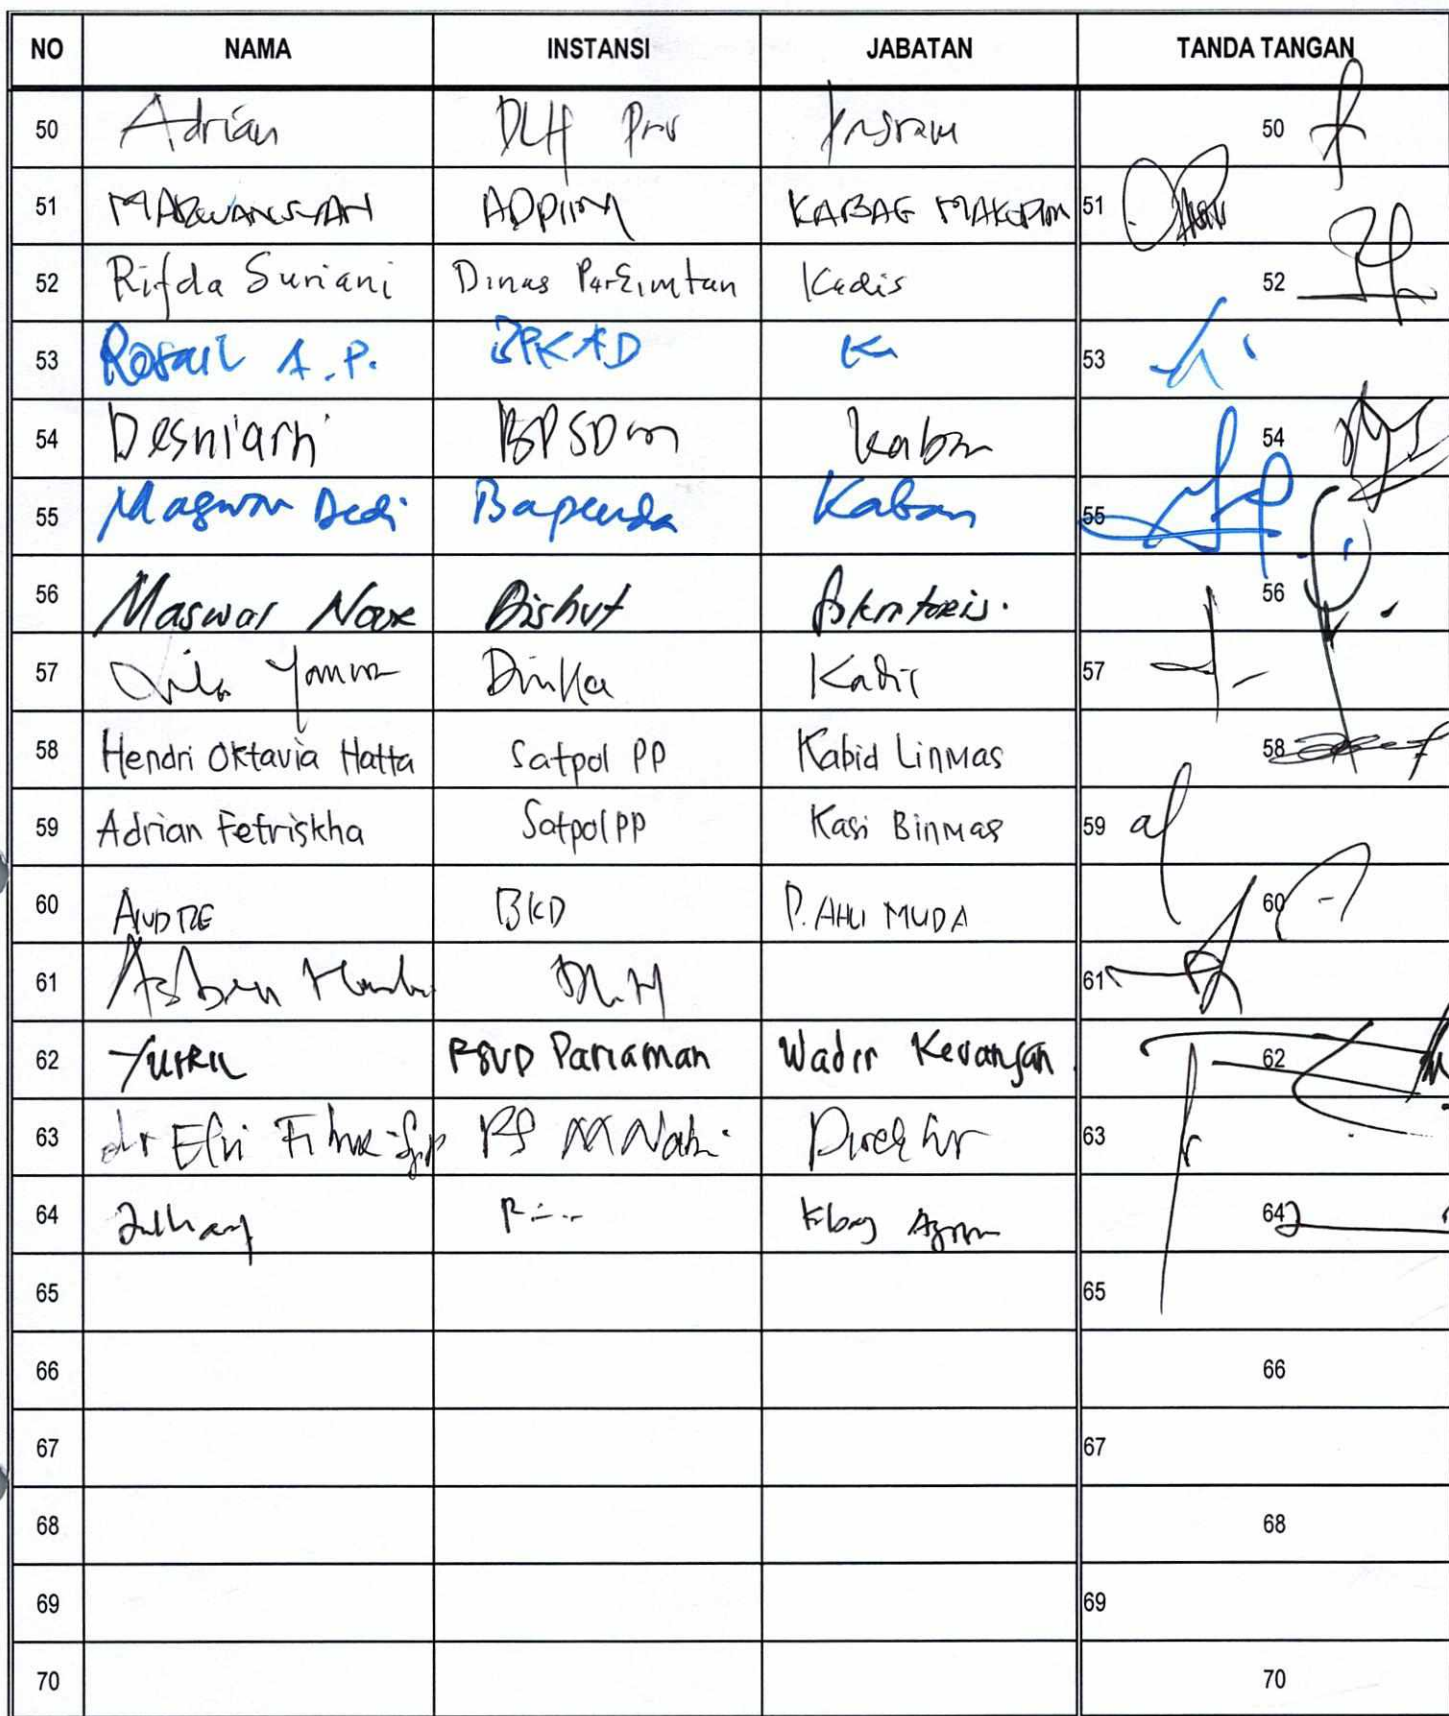 NO NAMA INSTANSI JABATAN TANDA TANGAN
50 Adrian DLH Prv 50
51 MARWANSYAH ADPIM KABAG MAKOPIM 51
52 Rifda Suriani Dinas Perkimtan Kadis 52
53 Rosail A.P. BPKAD Ka 53
54 Desniarti BPSDM Kaban 54
55 Maswar Dedi Bapenda Kaban 55
56 Maswar Dishut 56
57 Lila Yanwar 57
58 Hendri Oktavia Hatta Satpol PP Kabid Linmas 58
59 Adrian Fetriskha Satpol PP Kasi Binmas 59
60 AUDRE BKD P. AHLI MUDA 60
61 Asben 61
62 Yusril RSUD Pariaman Wadir Keuangan 62
63 dr Elvi RS M Natsir Direktur 63
64 64
65 65
66 66
67 67
68 68
69 69
70 70